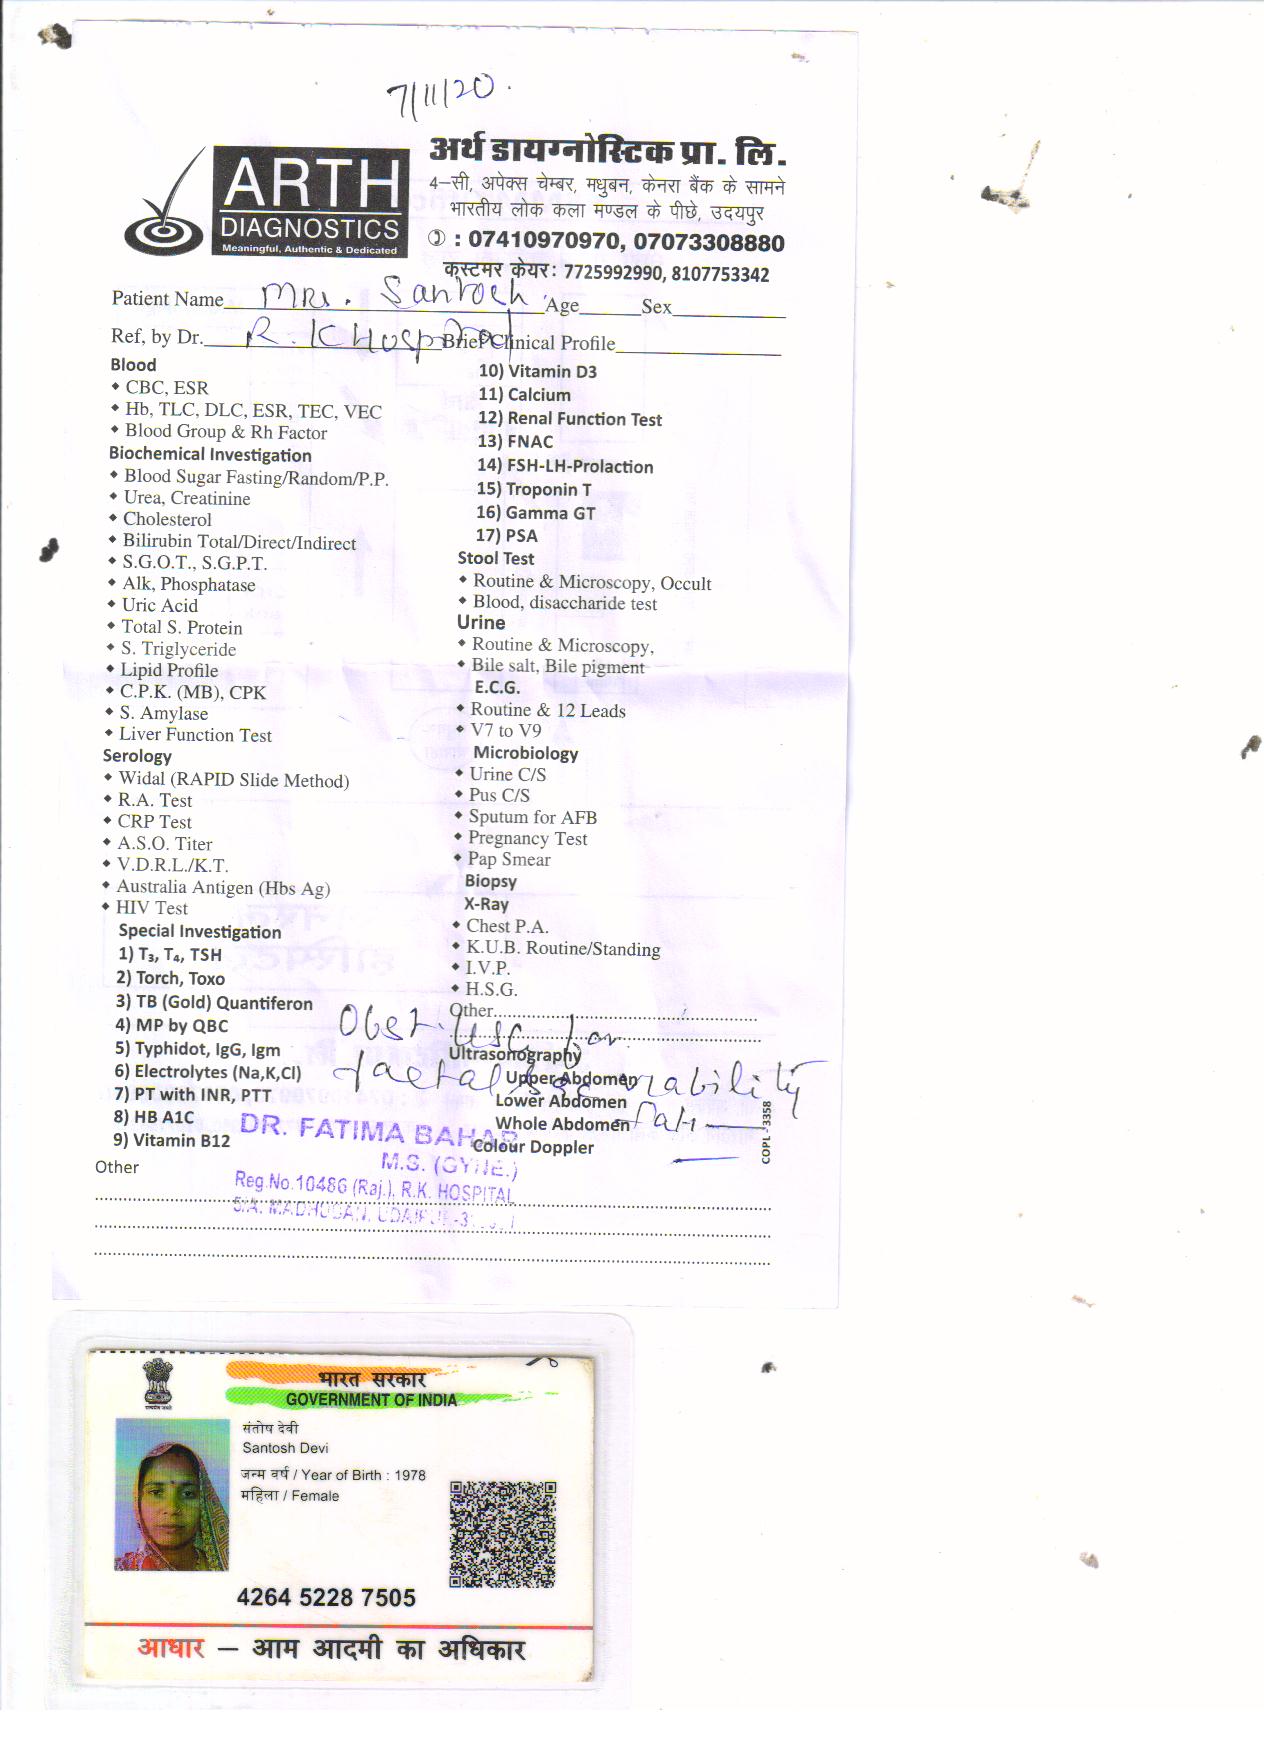 7/11/20.
ARTH
DIAGNOSTICS
Meaningful, Authentic & Dedicated
अर्थ डायग्नोस्टिक प्रा. लि.
4–सी, अपेक्स चेम्बर, मधुबन, केनरा बैंक के सामने
भारतीय लोक कला मण्डल के पीछे, उदयपुर
: 07410970970, 07073308880
कस्टमर केयर: 7725992990, 8107753342
Patient Name Mrs. Santosh Age Sex
Ref, by Dr. R. K Hospital Brief Clinical Profile
Blood
CBC, ESR
Hb, TLC, DLC, ESR, TEC, VEC
Blood Group & Rh Factor
Biochemical Investigation
Blood Sugar Fasting/Random/P.P.
Urea, Creatinine
Cholesterol
Bilirubin Total/Direct/Indirect
S.G.O.T., S.G.P.T.
Alk, Phosphatase
Uric Acid
Total S. Protein
S. Triglyceride
Lipid Profile
C.P.K. (MB), CPK
S. Amylase
Liver Function Test
Serology
Widal (RAPID Slide Method)
R.A. Test
CRP Test
A.S.O. Titer
V.D.R.L./K.T.
Australia Antigen (Hbs Ag)
HIV Test
Special Investigation
1) T₃, T₄, TSH
2) Torch, Toxo
3) TB (Gold) Quantiferon
4) MP by QBC
5) Typhidot, IgG, Igm
6) Electrolytes (Na,K,Cl)
7) PT with INR, PTT
8) HB A1C
9) Vitamin B12
Other
10) Vitamin D3
11) Calcium
12) Renal Function Test
13) FNAC
14) FSH-LH-Prolaction
15) Troponin T
16) Gamma GT
17) PSA
Stool Test
Routine & Microscopy, Occult
Blood, disaccharide test
Urine
Routine & Microscopy,
Bile salt, Bile pigment
E.C.G.
Routine & 12 Leads
V7 to V9
Microbiology
Urine C/S
Pus C/S
Sputum for AFB
Pregnancy Test
Pap Smear
Biopsy
X-Ray
Chest P.A.
K.U.B. Routine/Standing
I.V.P.
H.S.G.
Other
Obst. USG for
Ultrasonography
faetal viability
Upper Abdomen
Lower Abdomen
Whole Abdomen
Colour Doppler
COPL -3358
DR. FATIMA BAHAR
M.S. (GYNE.)
Reg.No.10486 (Raj.), R.K. HOSPITAL
5/A, MADHUBAN, UDAIPUR
भारत सरकार
GOVERNMENT OF INDIA
संतोष देवी
Santosh Devi
जन्म वर्ष / Year of Birth : 1978
महिला / Female
4264 5228 7505
आधार – आम आदमी का अधिकार